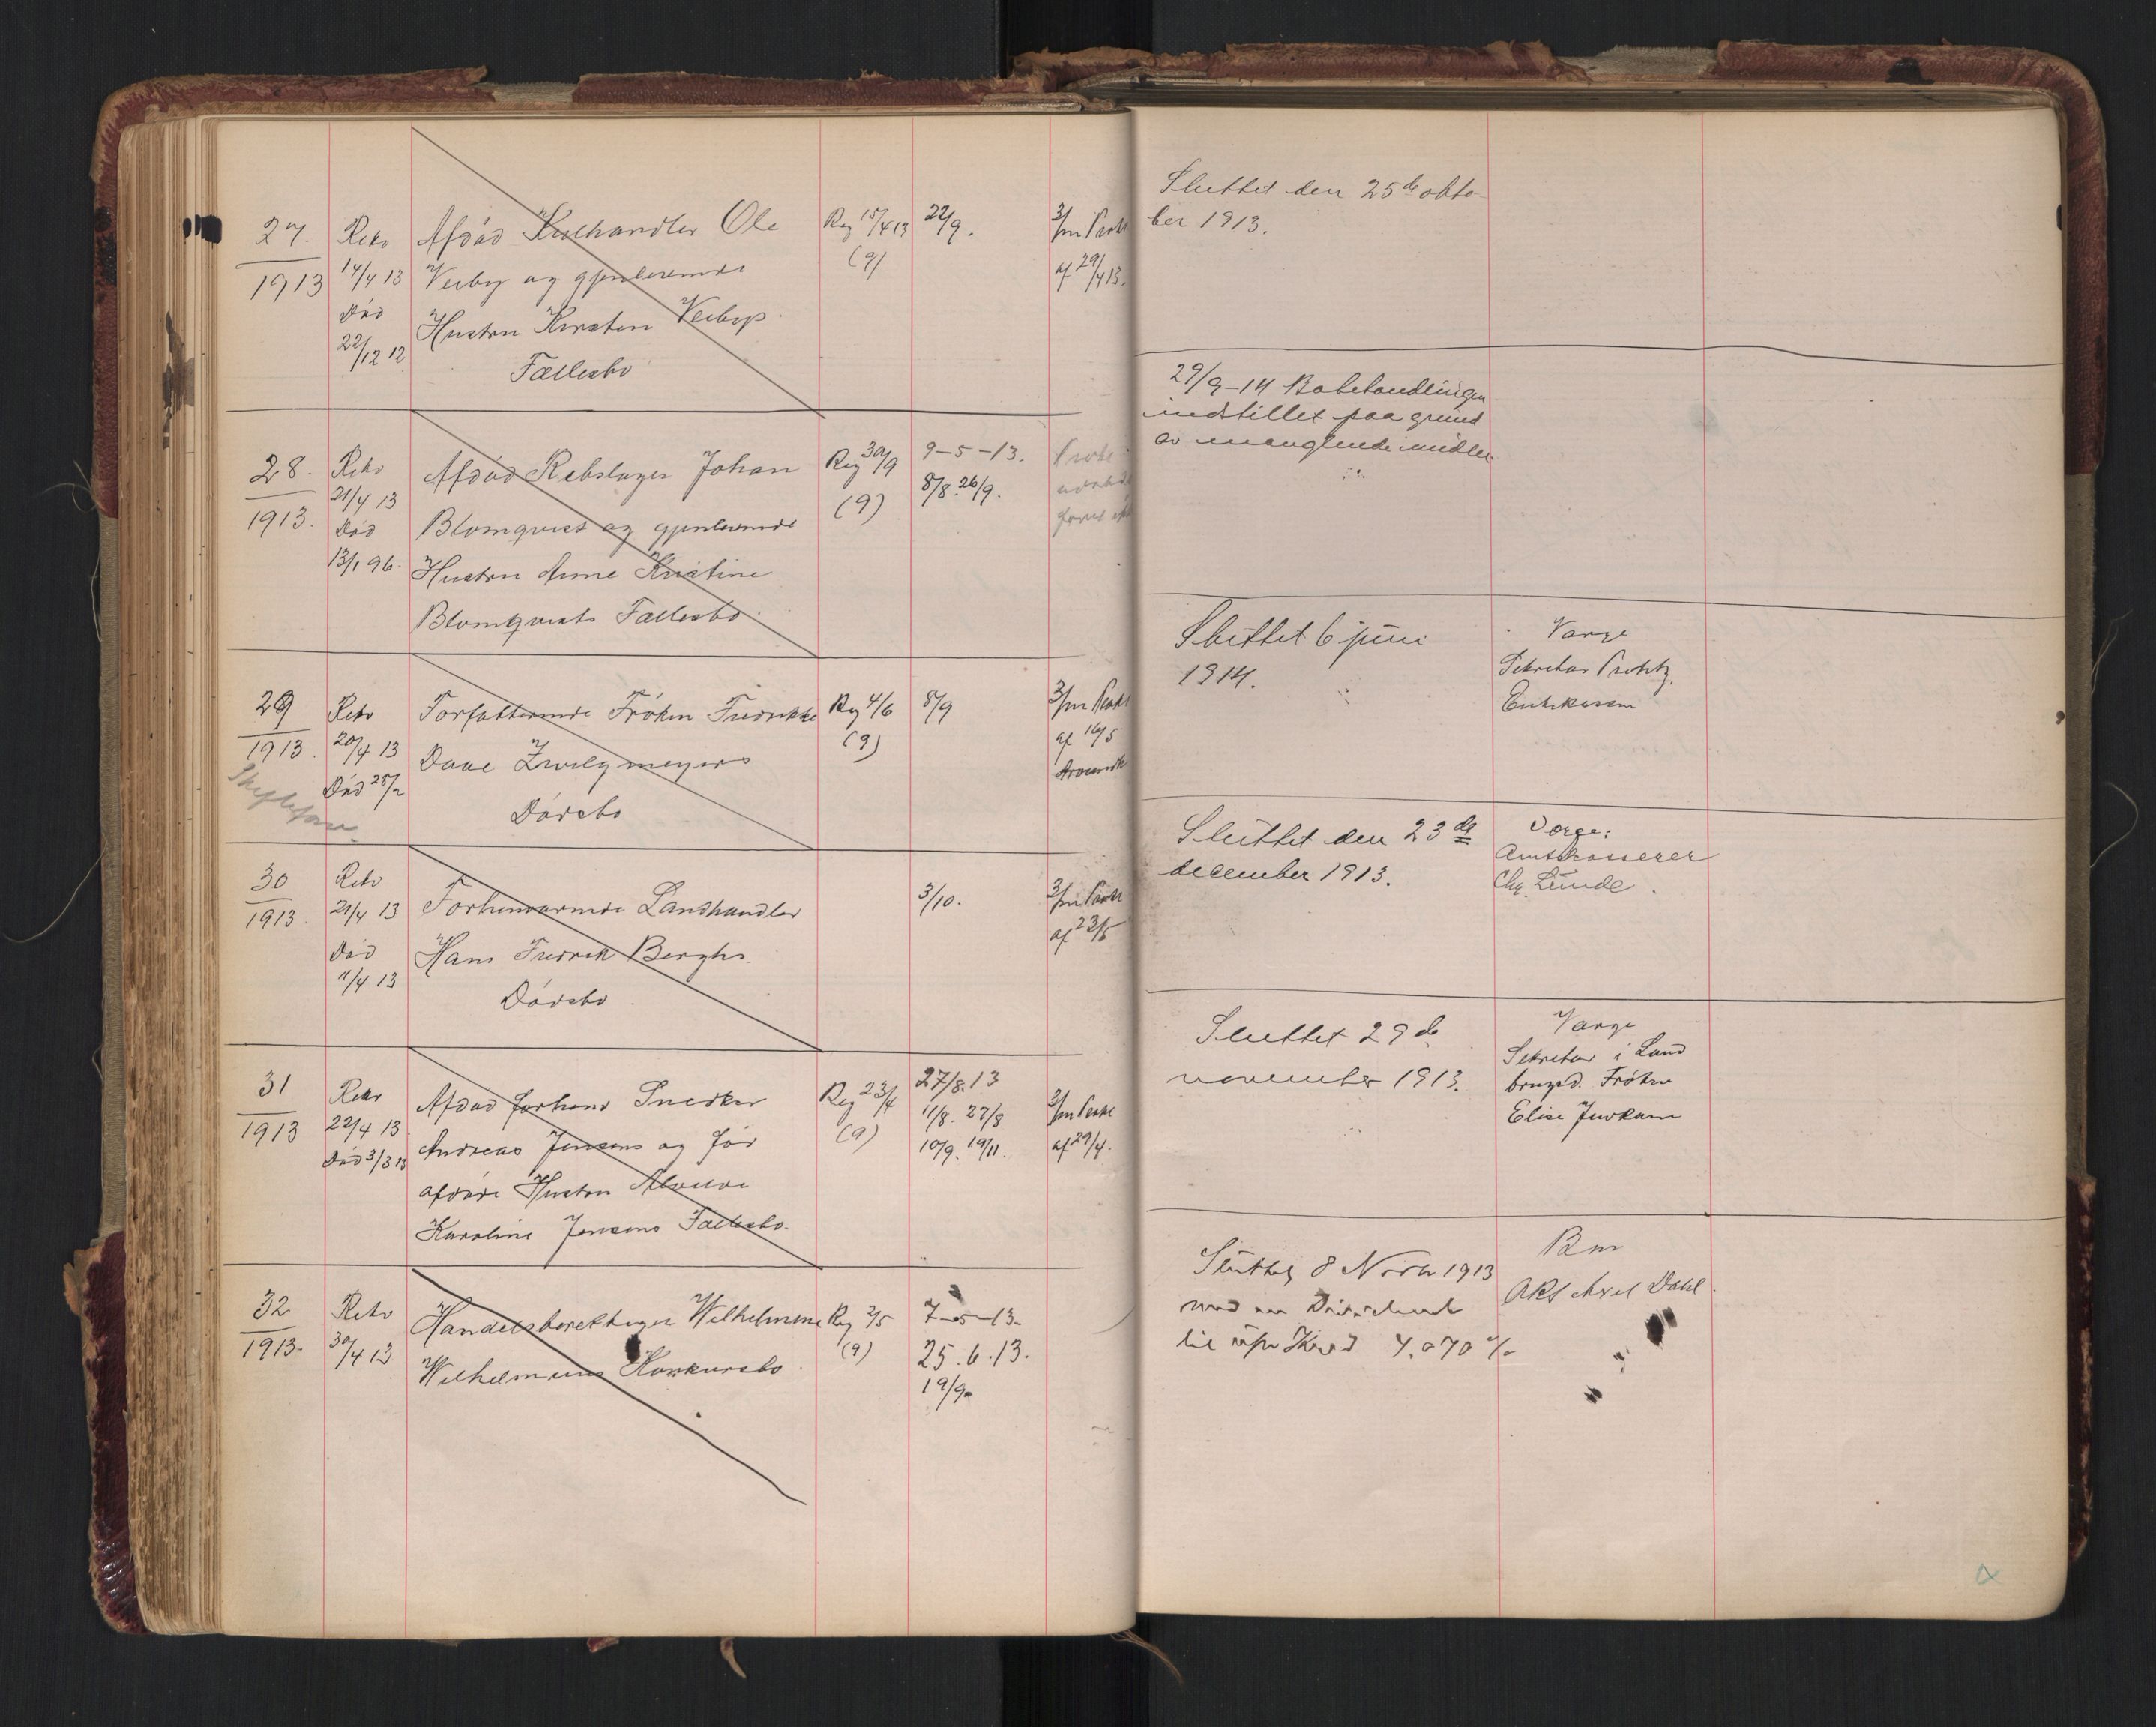 27.
1913
Rekv
14/4 13
Död
22/12 12
Afdød Kulhandler Ole
Veiby og gjenlevende
Hustru Kirsten Veibys
Fællesbo
Reg 15/4 13
(9)
22/9.
3/m Prokl
af 29/4 13.
Sluttet den 25de okto-
ber 1913.
28.
1913.
Rekv
21/4 13
Død
13/1 96.
Afdød Rebslager Johan
Blomqvist og gjenlevende
Hustru Anne Kristine
Blomqvists Fællesbo.
Reg 30/9
(9)
9-5-13.
8/8. 26/9.
29/9-14 Bobehandlingen
indstillet paa grund
av manglende midler
29
1913.
Rekv
20/4 13
Død 28/2
Forfatterinde Frøken Fredrikke
Daae Zwilgmeyers
Dødsbo
Reg 4/6
(9)
8/9
3/m Prokl
af 16/5
Sluttet 6 juni
1914.
Værge
Sekretær Protitz
30
1913.
Rekv
21/4 13
Død
11/4 13
Forhenværende Landhandler
Hans Fredrik Berghs
Dødsbo
3/10.
3/m Prokl
af 23/5
Sluttet den 23de
december 1913.
Værge:
Amtskasserer
Chr. Lunde.
31
1913
Rekv
22/4 13.
Død 3/3 13
Afdød forhenv Snedker
Andreas Jensens og før
afdøde Hustru Alvilde
Karoline Jensens Fællesbo.
Reg 23/4
(9)
27/8.13
11/8. 27/8
10/9. 19/11.
3/m Prokl
af 29/4.
Sluttet 29de
november 1913.
Værge
Sekretær i Land
brugsd. Frøken
Elise
32
1913.
Rekv
30/4 13
Handelsberettiget Wilhelmine
Wilhelmsens Konkursbo
Reg 2/5
(9)
7-5-13.
25.6.13.
19/9
Sluttet 8 Novbr 1913
med en
til 4.070 %
Bm
ORS Axel Dahl